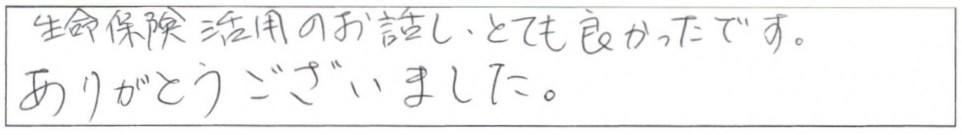 生命保険活用のお話し、とても良かったです。
ありがとうございました。